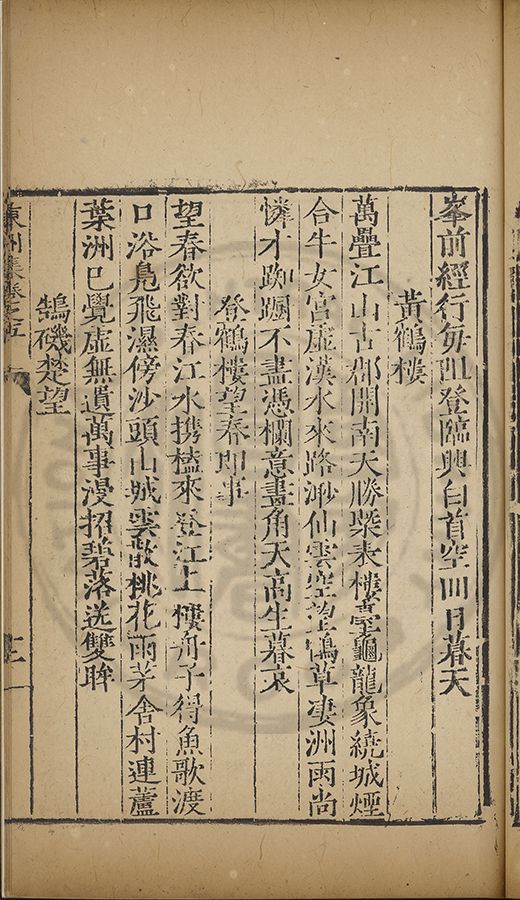 峯前經行每阻登臨興白首空回日暮天
黃鶴樓
萬疊江山古郡開南天勝槩表樓臺龜龍象繞城煙
合牛女宮虛漢水來路渺仙雲空望鵠草凄洲雨尚
憐才踟蹰不盡憑欄意畫角天高生暮哀
登鶴樓望春即事
望春欲對春江水携榼來登江上樓舟子得魚歌渡
口浴鳧飛濕傍沙頭山城雲散桃花雨茅舍村連蘆
葉洲已覺虛無遺萬事漫招碧落送雙眸
鵠磯楚望
東洲集卷之五